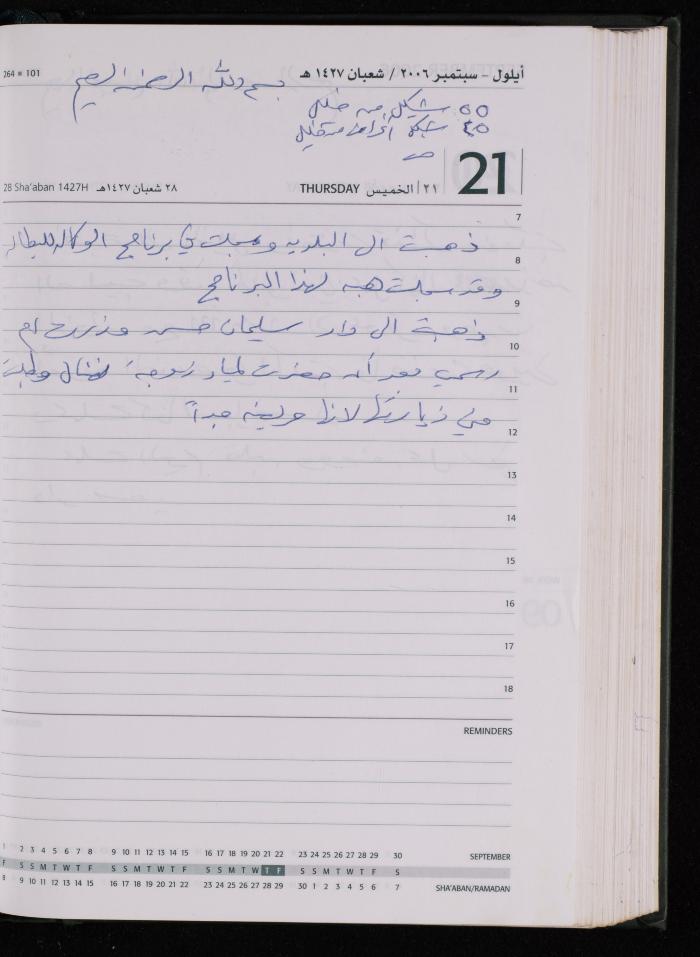 264 ■ 101
أيلول - سبتمبر ٢٠٠٦ / شعبان ١٤٢٧ هـ
بسم الله الرحمن الرحيم
٥٥ شيكل من خليل
٤٥ شيكل من خليل
28 Sha'aban 1427H
٢٨ شعبان ١٤٢٧هـ
THURSDAY
٢١ | الخميس
21
7
ذهبت الى البلديه وسجلت في برنامج الوكاله للبطاله
8
وقد سجلت هبه لهذا البرنامج
9
ذهبت الى دار سليمان حسن وزرت ام
10
رسمي بعد أن حضرت لمياء زوجة نضال
11
في زيارتها لانها مريضه جداً
12
13
14
15
16
17
18
REMINDERS
1 2 3 4 5 6 7 8 9 10 11 12 13 14 15 16 17 18 19 20 21 22 23 24 25 26 27 28 29 30 SEPTEMBER
F S S M T W T F S S M T W T F S S M T W T F S S M T W T F S
8 9 10 11 12 13 14 15 16 17 18 19 20 21 22 23 24 25 26 27 28 29 30 1 2 3 4 5 6 7 SHA'ABAN/RAMADAN